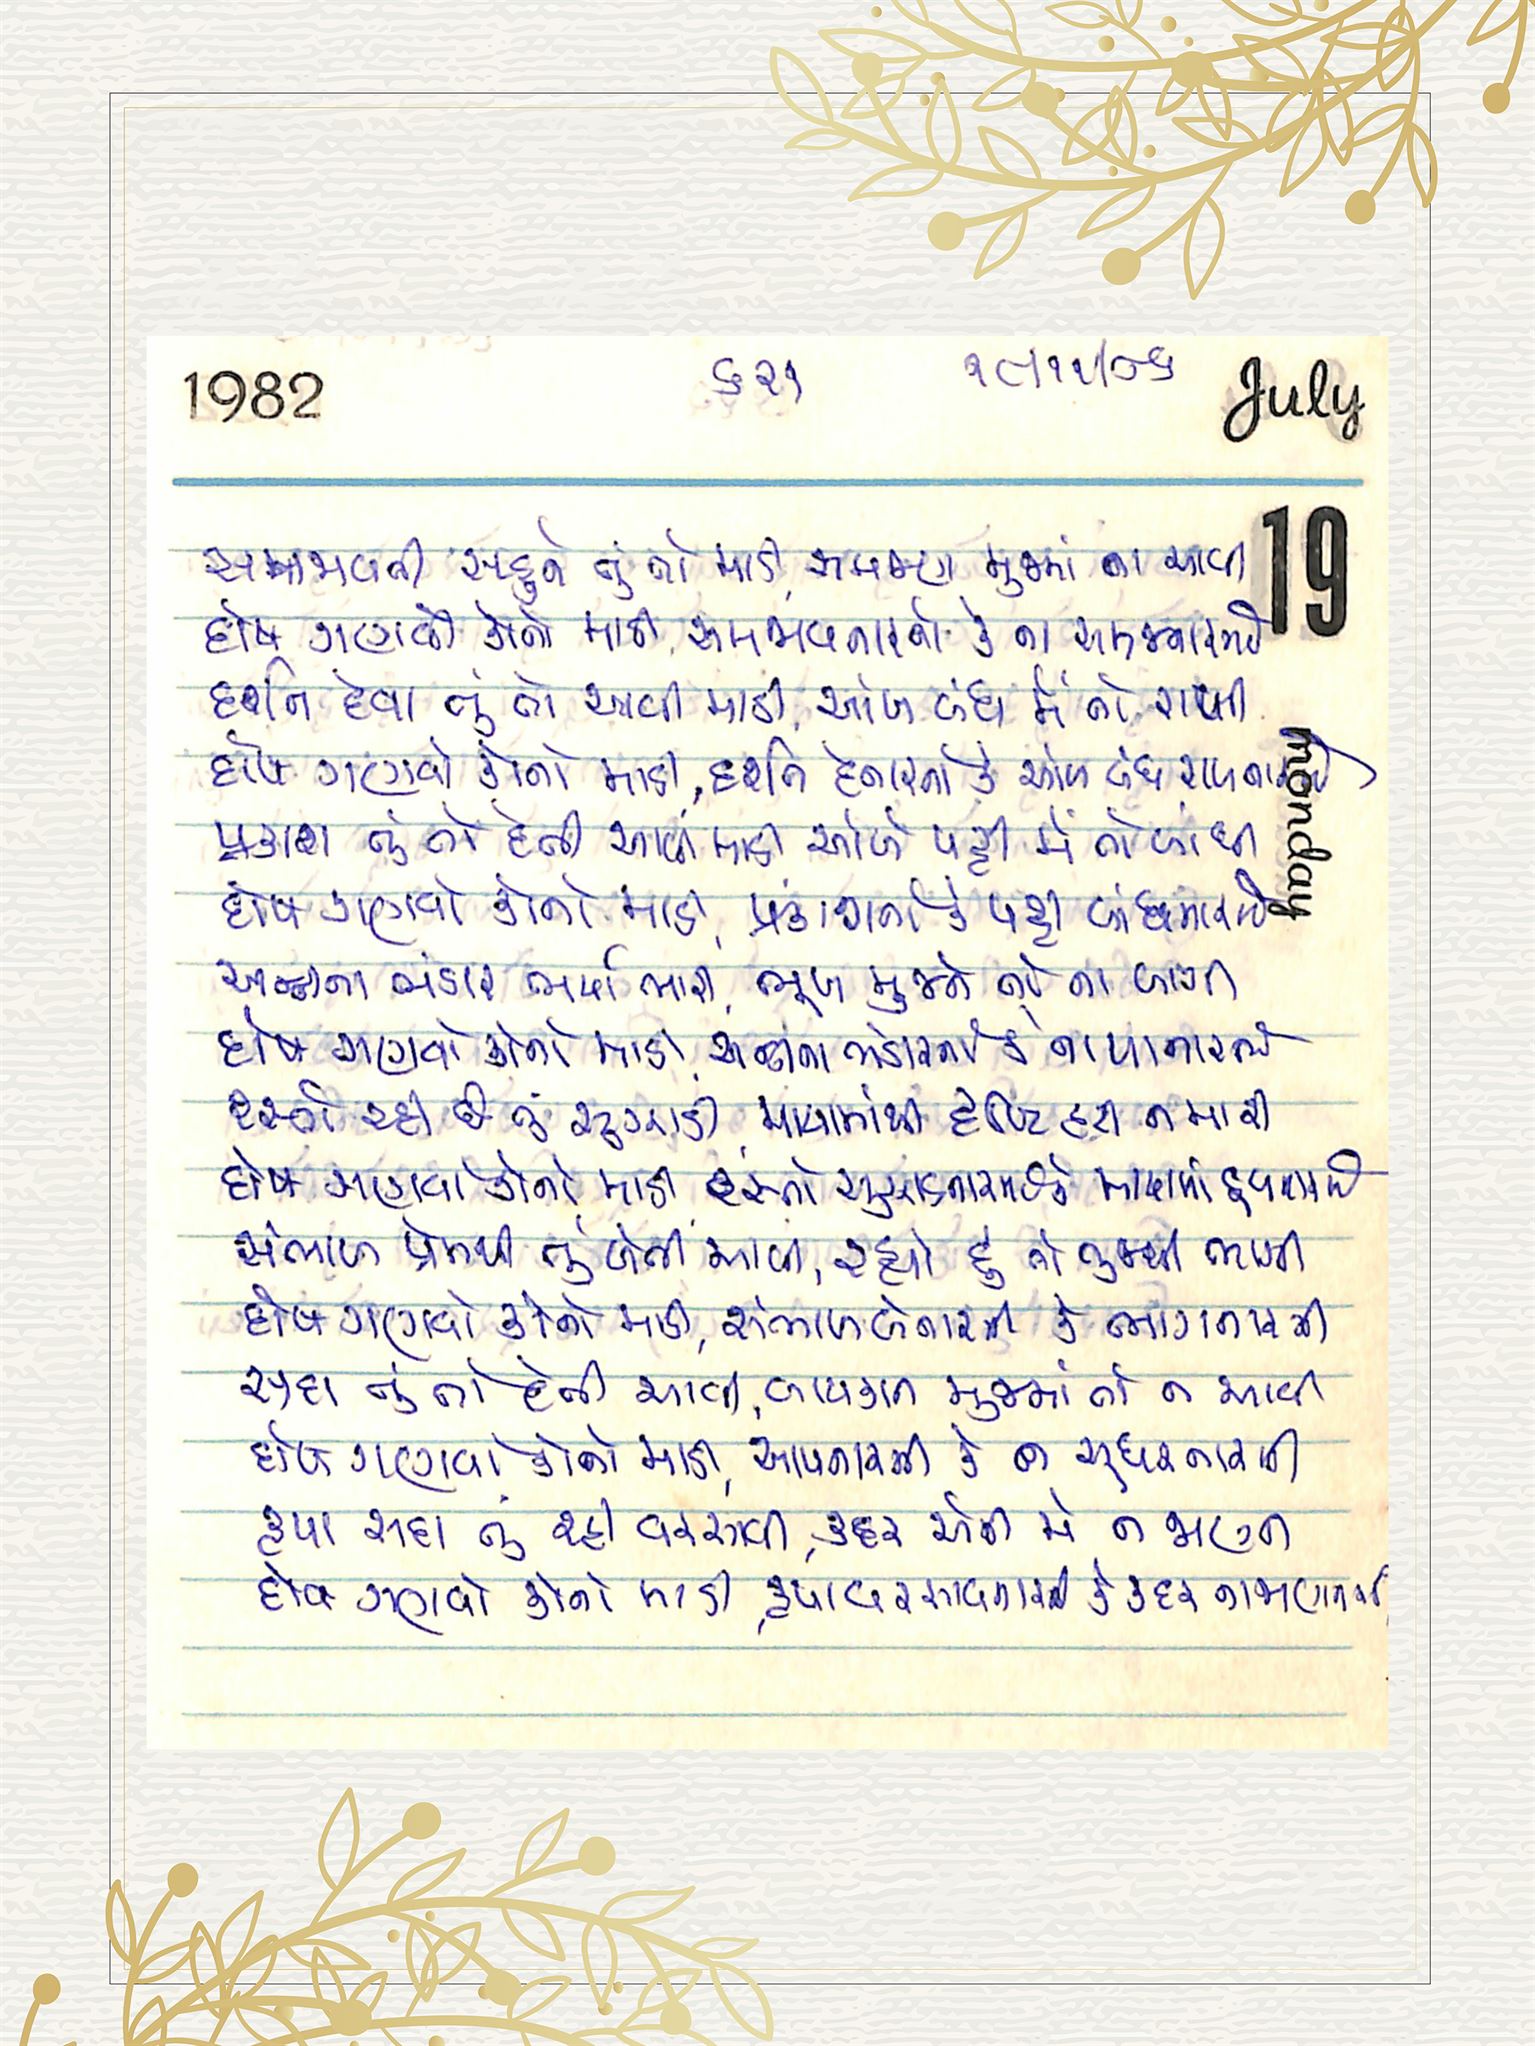 1982
૬૨૧
૧૮/૧૧/૮૬
July
19
monday
સમજાવતી સહુને તું તો માડી, સમજણ મુજમાં ના આવી
દોષ ગણવો કોનો માડી, સમજાવનારનો કે ના સમજનારનો
દર્શન દેવા તું તો આવી માડી, આંખ બંધ મેં તો રાખી
દોષ ગણવો કોનો માડી, દર્શન દેનારનો કે આંખ બંધ રાખનારનો
પ્રકાશ તું તો દેતી આવી માડી આંખે પટ્ટી મેં તો બાંધી
દોષ ગણવો કોનો માડી, પ્રકાશનો કે પટ્ટી બાંધનારનો
અન્નના ભંડાર ભર્યા ભારી, ભૂખ મુજને તોયે ના લાગી
દોષ ગણવો કોનો માડી, અન્નના ભંડારનો કે ના ખાનારનો
રસ્તો રહી છે તું સુઝાડી માયામાંથી દૃષ્ટિ હટી ન મારી
દોષ ગણવો કોનો માડી રસ્તો સુઝાડનારનો કે માયામાં ડૂબનારનો
સંભાળ પ્રેમથી તું લેતી આવી, રહ્યો હું તો તુજથી ભાગી
દોષ ગણવો કોનો માડી, સંભાળ લેનારની કે ભાગનારની
સદા તું તો દેતી આવી, લાયકાત મુજમાં તો ન આવી
દોષ ગણવો કોનો માડી, આપનારની કે ન સુધરનારની
કૃપા સદા તું રહી વરસાવી, કદર એની મેં ન જાણી
દોષ ગણવો કોનો માડી, કૃપા વરસાવનારની કે કદર ના જાણનારની